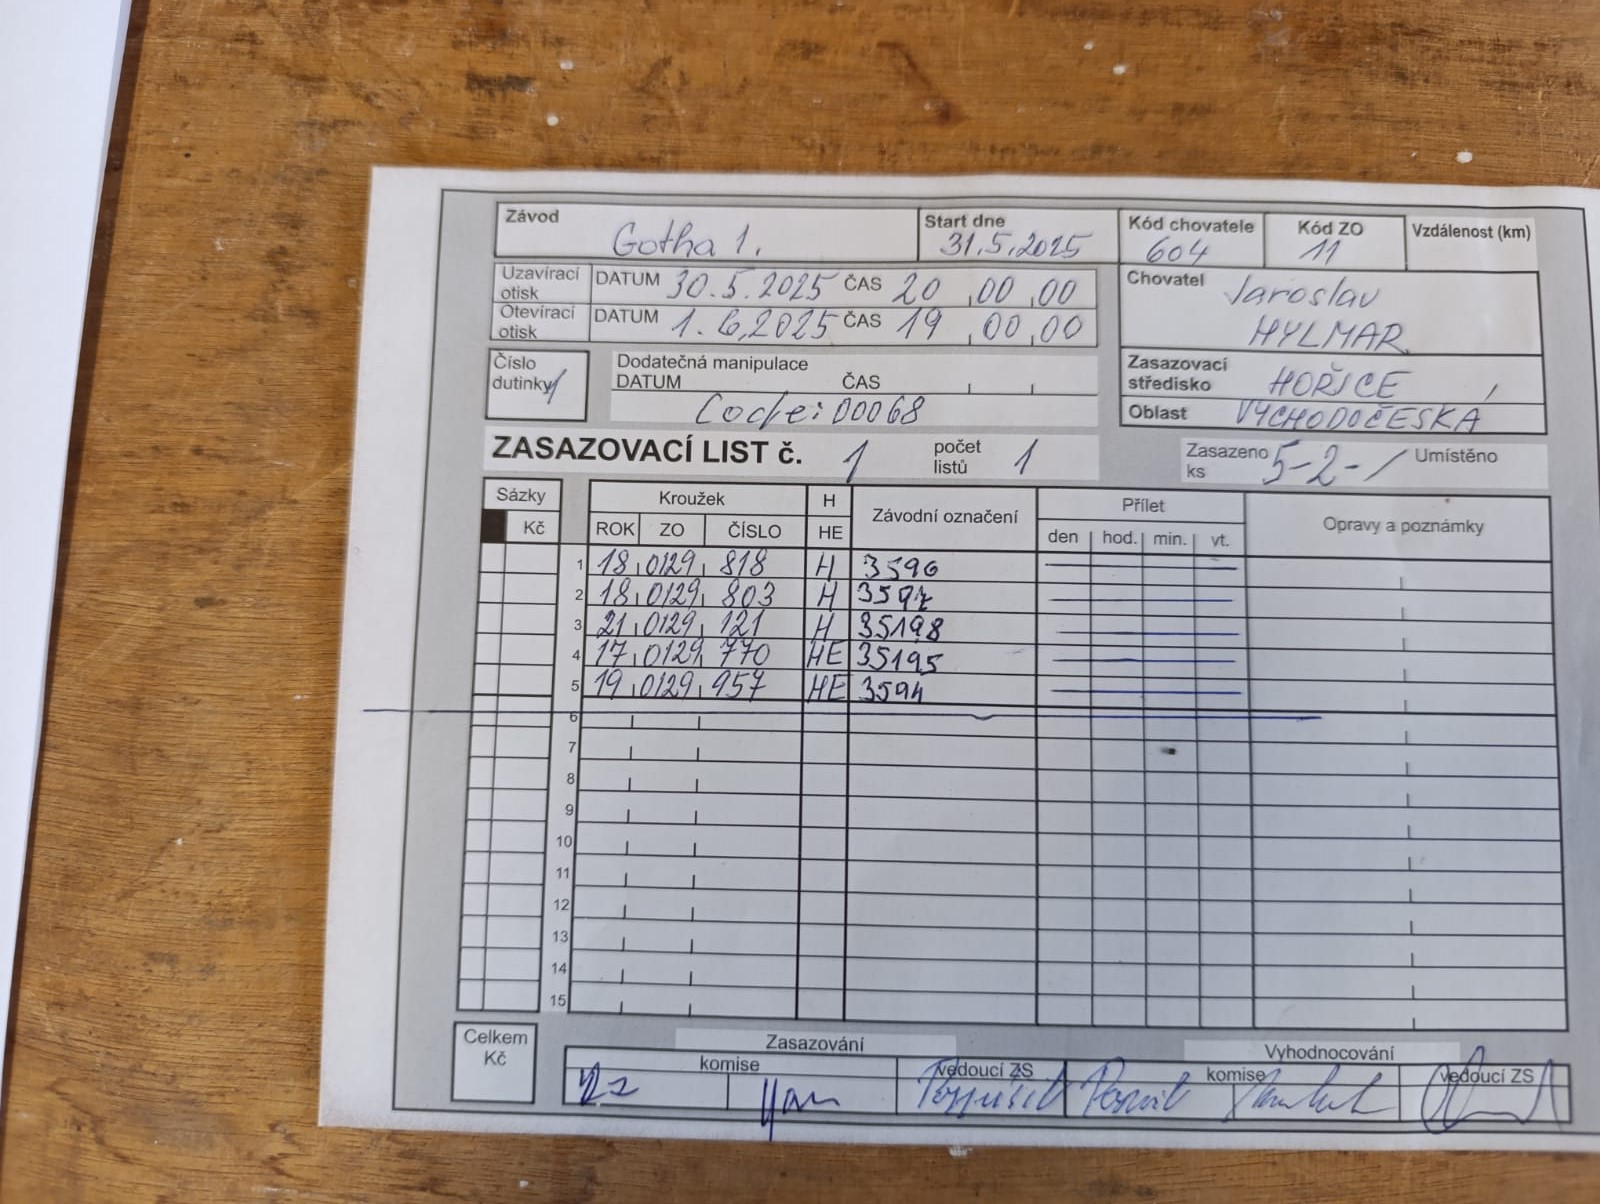 Závod Gotha 1. Start dne 31.5.2025 Kód chovatele 604 Kód ZO 11 Vzdálenost (km)
Uzavírací otisk DATUM 30.5.2025 ČAS 20 00 00
Otevírací otisk DATUM 1.6.2025 ČAS 19 00 00
Chovatel Jaroslav
HYLMAR
Číslo dutinky 1
Dodatečná manipulace
DATUM ČAS
Code: 00068
Zasazovací středisko HOŘICE
Oblast VÝCHODOČESKÁ
ZASAZOVACÍ LIST č. 1 počet listů 1 Zasazeno ks 5-2-1 Umístěno
Sázky Kroužek H Závodní označení Přílet Opravy a poznámky
Kč ROK ZO ČÍSLO HE den hod. min. vt.
1 18 0129 818 H 3596
2 18 0129 803 H 3597
3 21 0129 121 H 35198
4 17 0129 770 HE 35195
5 19 0129 957 HE 3594
6
7
8
9
10
11
12
13
14
15
Celkem Kč
Zasazování Vyhodnocování
komise vedoucí ZS komise vedoucí ZS